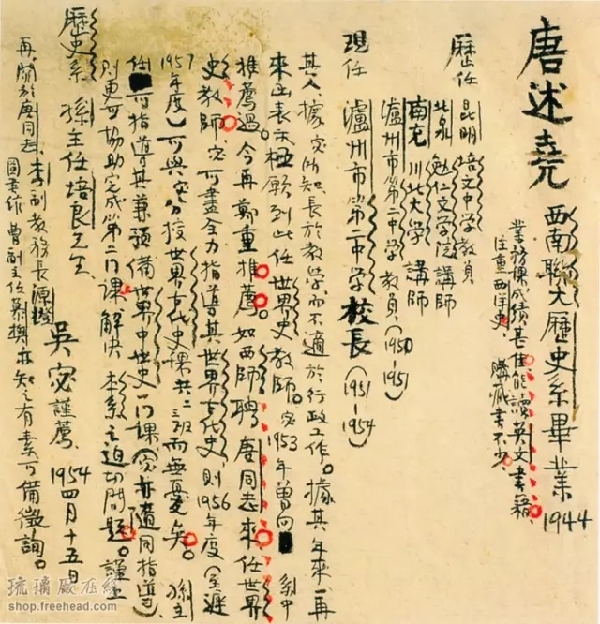 唐述堯 西南聯大歷史系畢業 1944
業務課成績甚佳，能讀英文書籍。
注重西洋史。購藏書不少。
歷任 昆明 培文中學教員
北泉 勉仁文學院講師
南充 川北大學 講師
瀘州市第二中學 教員（1950-1951）
現任 瀘州市第二中學 校長（1951-1954）
其人據宓所知，長於教學，而不適於行政工作。據其年來一再
來函表示，極願到此任世界史教師。宓1953年曾向 系中
推薦過。今再鄭重推薦。如西師聘 唐同志來任世界
史教師，宓可盡全力指導其世界古代史，則1956年度（至遲
1957年度）可與宓分授世界古代史課共二三班而無憂矣。孫主
任 可指導其兼預備世界中世史一門課（宓亦隨同指導），
則更可協助完成第二門課，解決 本系之迫切問題。謹上
歷史系 孫主任培良先生。
吳宓謹薦。1954四月十五日
再，關於唐同志，李副教務長源澄
圖書館 曾副主任 亦知之有素，可備徵詢。
琉璃廠在線
shop.freehead.com